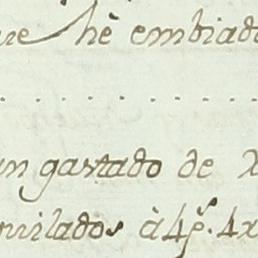 ue hè embiado
. . . . . . . . . .
un gastado de
uilados à 4p̃. 4x